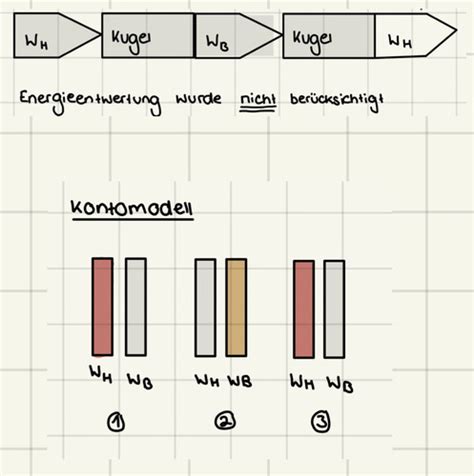 WH Kugel WB Kugel WH
Energieentwertung wurde nicht berücksichtigt
Kontomodell
WH WB WH WB WH WB
① ② ③